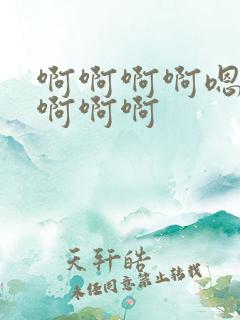 啊啊啊啊嗯
啊啊啊
天轩皓
未经同意禁止转载